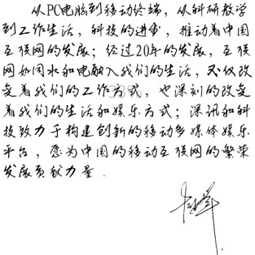 从PC电脑到移动终端，从科研教学
到工作生活，科技的进步，推动着中国
互联网的发展；经过20年的发展，互联
网如同水和电融入我们的生活，不仅改
变着我们的工作方式，也深刻的改变
着我们的生活和娱乐方式；深讯和科
技致力于构建创新的移动多媒体娱乐
平台，愿为中国的移动互联网的繁荣
发展贡献力量．